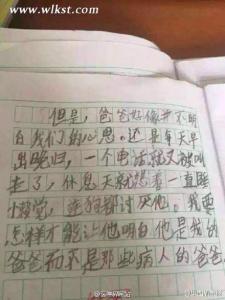 www.wlkst.com
但是，爸爸好像并不明
白我们的心思。还是每天早
出晚归，一个电话就又被叫
走了，休息天就想着一直睡
小懒觉，连狗都讨厌他。我要
怎样才能让他明白他是我的
爸爸而不是那些病人的爸爸